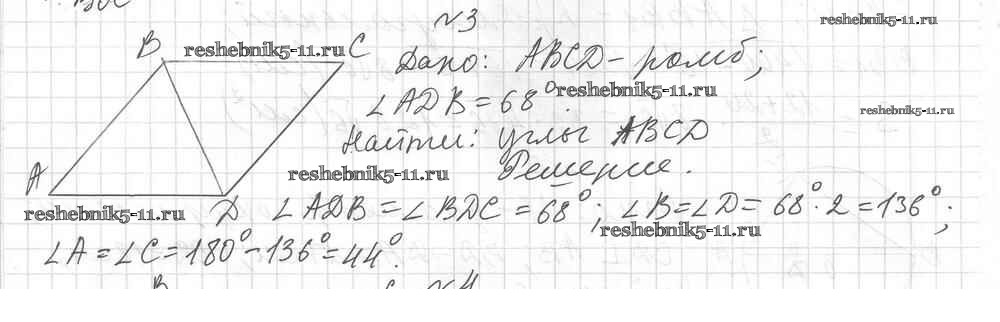 №3
reshebnik5-11.ru
B reshebnik5-11.ru C
Дано: ABCD - ромб;
∠ADB = 68°. reshebnik5-11.ru
reshebnik5-11.ru
Найти: углы ABCD
A reshebnik5-11.ru Решение.
reshebnik5-11.ru D ∠ADB = ∠BDC = 68°; ∠B = ∠D = 68° · 2 = 136°;
reshebnik5-11.ru
∠A = ∠C = 180° - 136° = 44°.
№4